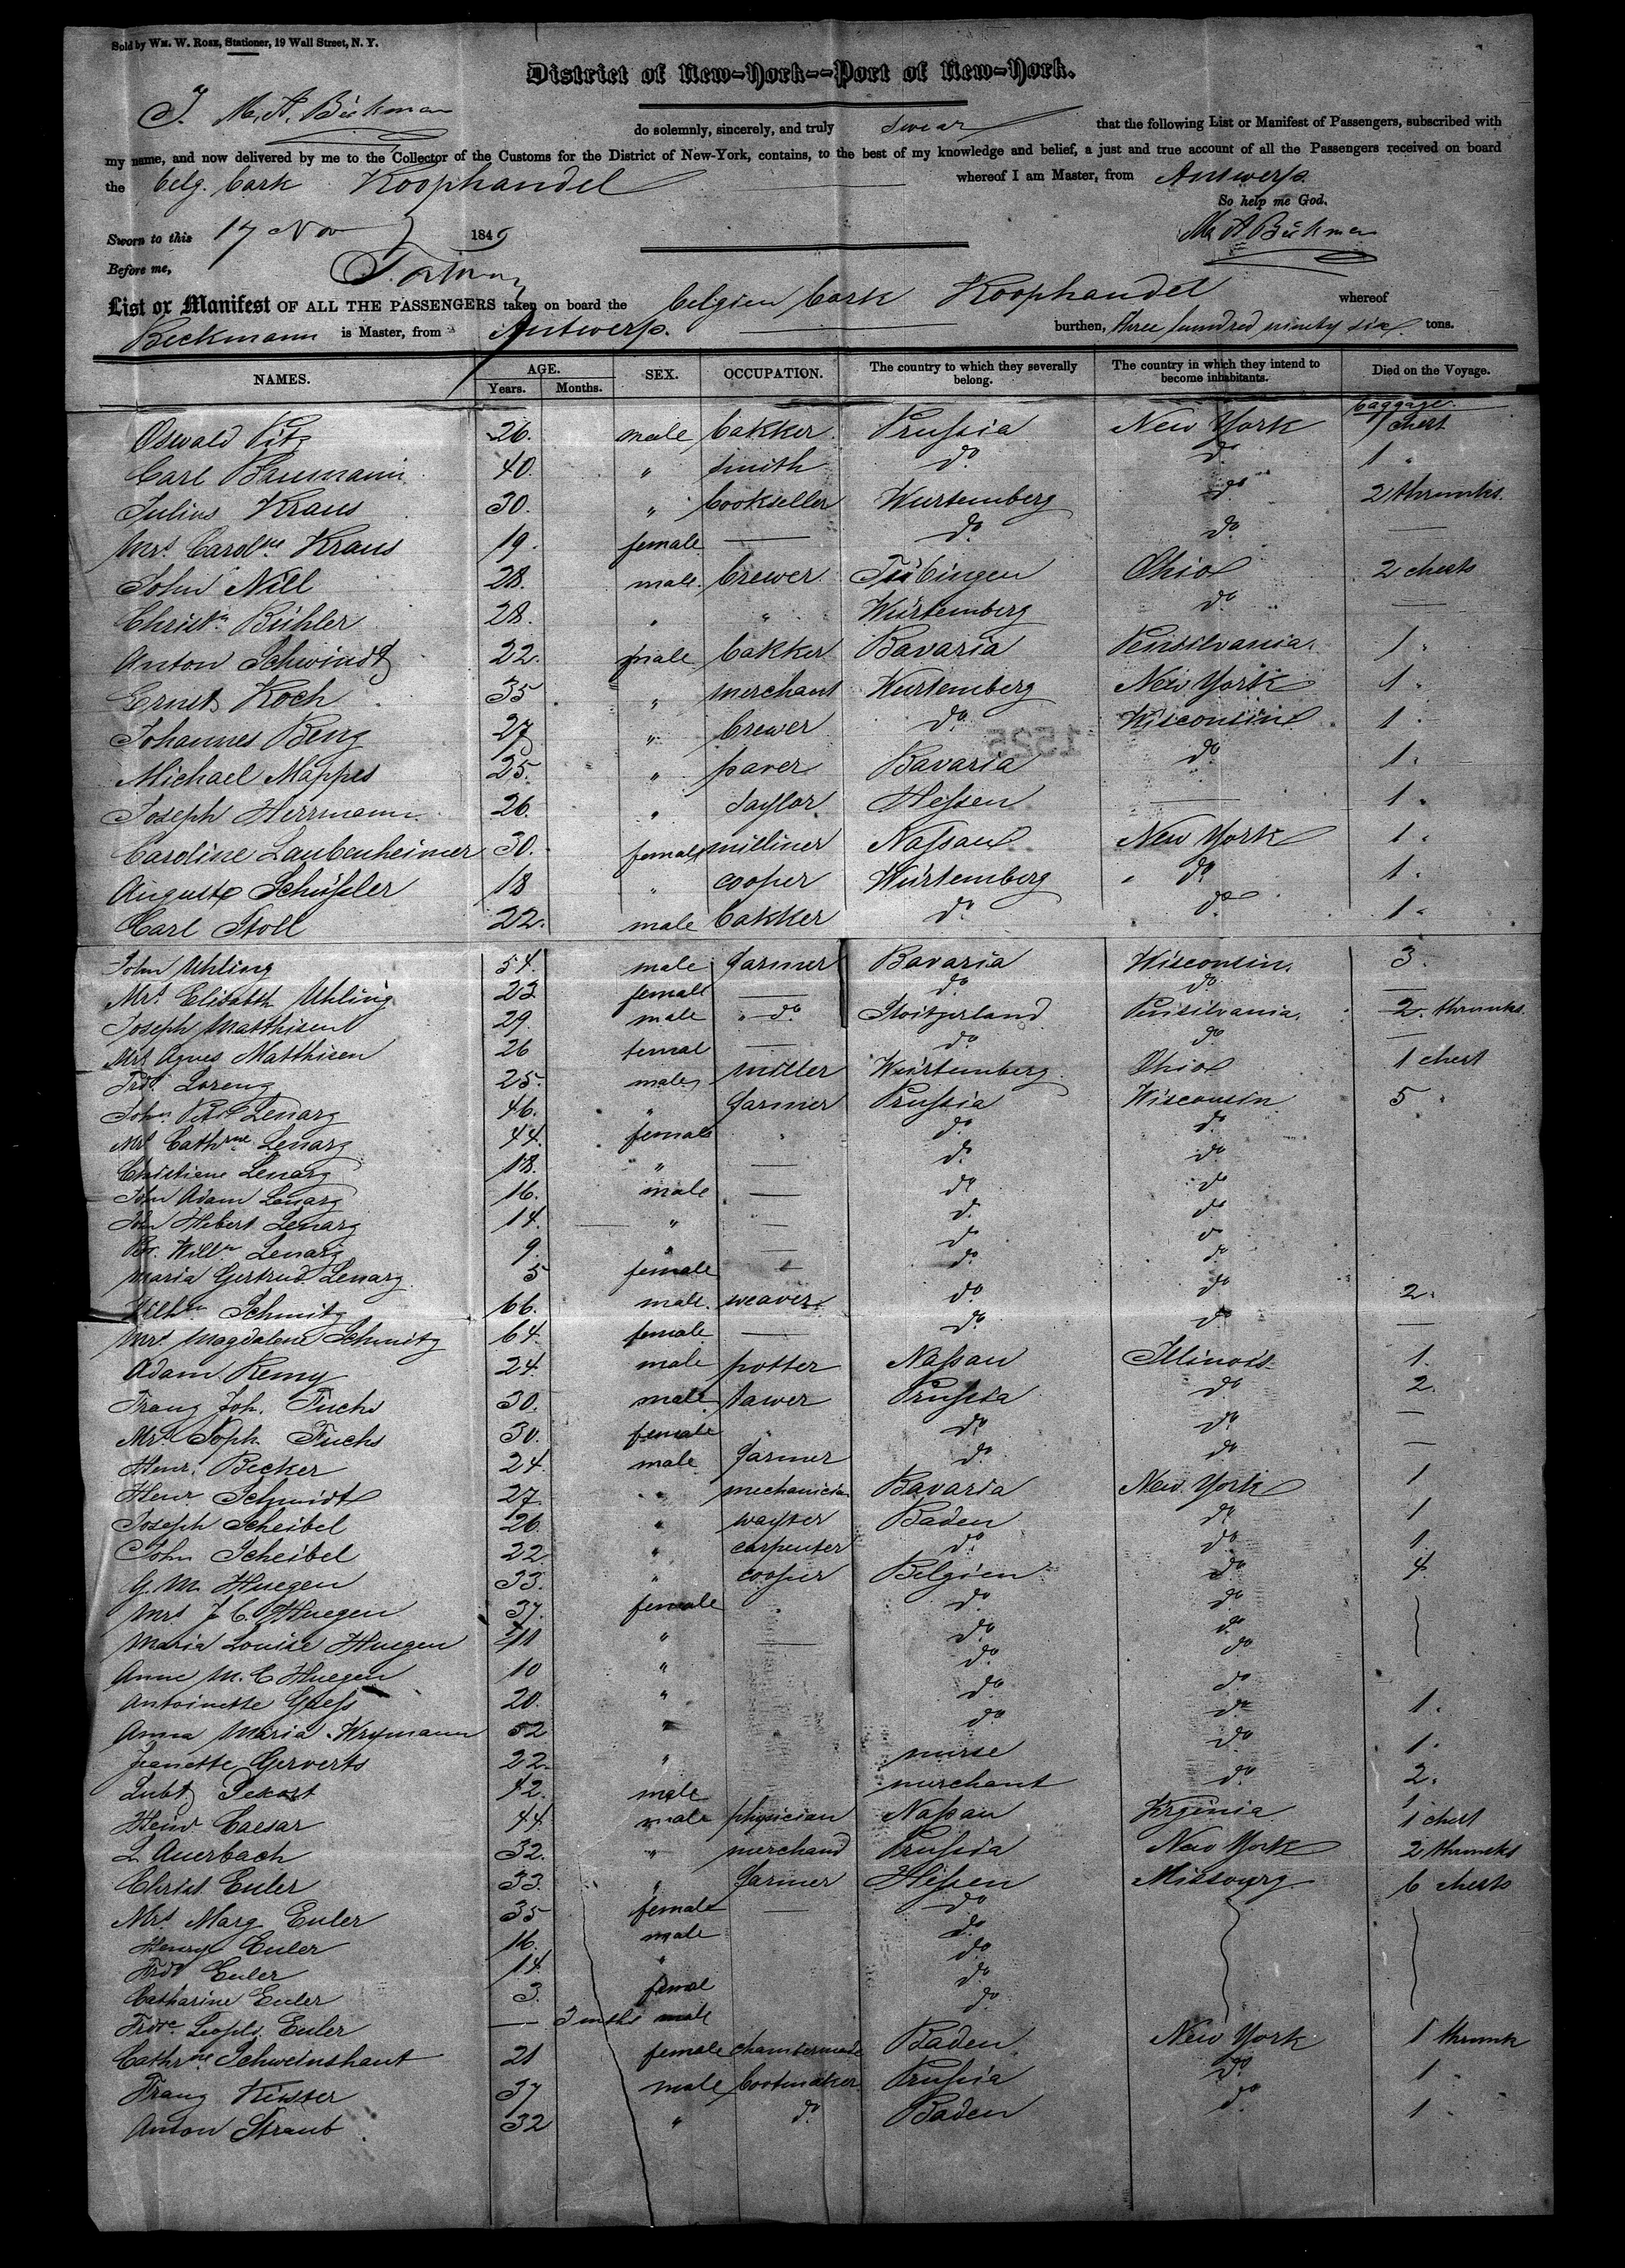 Sold by WM. W. ROSE, Stationer, 19 Wall Street, N. Y.
District of New-York--Port of New-York.
I. M. A. Bückman do solemnly, sincerely, and truly swear that the following List or Manifest of Passengers, subscribed with
my name, and now delivered by me to the Collector of the Customs for the District of New-York, contains, to the best of my knowledge and belief, a just and true account of all the Passengers received on board
the belg. bark Koophandel whereof I am Master, from Antwerp.
So help me God.
Sworn to this 17 Nov 1849 M A Bückman
Before me,
List or Manifest OF ALL THE PASSENGERS taken on board the belgien bark Koophandel whereof
Beckmann is Master, from Antwerp. burthen, three hundred ninety six tons.
NAMES. AGE. Years. Months. SEX. OCCUPATION. The country to which they severally belong. The country in which they intend to become inhabitants. Died on the Voyage.
baggage
Oswald Pitz 26. male bakker Prussia New York 1 chest
Carl Baumann 40. " smith do. do. 1 "
Julius Kraus 30. " bookseller Wurtemberg do 2 thrunks.
Mrs. Carolne Kraus 19. female — do. do. —
John Nill 28. male. brewer Tübingen Ohio 2 chests
Christn. Bühler 28. " " Würtemberg do. —
Anton Schwindt 22. male bakker Bavaria Pensilvania. 1 "
Ernst Koch 35 " merchant Wurtemberg New York 1 "
Johannes Beng 27 " brewer do. Wisconsin 1 "
Michael Mappes 25. " paver Bavaria do. 1 "
Joseph Herrmann 26. " taylor Hessen — 1 "
Caroline Laubenheimer 30. female milliner Nassau New York 1 "
Auguste Schüssler 18 " cooper Würtemberg " do 1 "
Carl Stoll 22. male bakker do. do. 1 "
John Uhling 54. male farmer Bavaria Wisconsin. 3.
Mrs. Elisabth Uhling 23 female — do do. —
Joseph Matthisen 29. male " do. Switzerland Pensilvania. 2. thrunks.
Mrs Agnes Matthisen 26 femal — do. do —
Frdr. Loreng 25. male miller Würtemberg Ohio 1 chest
John Petr Lenarz 46. " farmer Prussia Wisconsin 5 "
Mrs Cathrne Lenarz 44. female " do. do.
Christiane Lenarz 18. " — do. do.
John Adam Lenarz 16. male — do do
John Hubert Lenarz 14. — " — do. do
Willm Lenarz 9. " — do do
Maria Gertrud Lenarz 5 female — do. do.
Wilhm Schmitz 66. male. weaver do. do 2.
Mrs Magdalene Schmitz 64. female — do. do —
Adam Remy 24. male potter Nassau Illinois 1.
Franz Joh. Fuchs 30. male tawer Prussia do 2.
Mrs. Soph. Fuchs 30. female " do. do. —
Henr. Becker 24. male farmer do. do —
Henr. Schmidt 27. " mechanician Bavaria New York 1
Joseph Scheibel 26. " Baden do. 1
John Scheibel 22. " carpenter do. do. 1.
G. M. Huegen 33. " cooper Belgien do. 4.
Mrs J. C. Huegen 37. female do. do
Maria Louise Huegen 11 " — do. do.
Anne M. C Huegen 10 " do. do
Antoinette Gaess 20. " do. do 1.
Anna Maria 52 " do. do.
Jeanette Gerverts 22. " nurse do 1.
42. male merchant do. 2.
Heinr Caesar 44 male physician Nassau Virginia 1 chest
L. Auerbach 32. " merchand Prussia New York 2 thrunks
Christ Euler 33. " farmer Hessen Missoury 6 chests
Mrs Marg Euler 35 female — do
Henry Euler 16. male do.
Frdr Euler 14. " do.
Catharine Euler 3. femal do.
Frdre. Leopld. Euler — 3 mths male do.
Cathrne Schweinshaut 21 female chambermade Baden. New York 1 thrunk
Franz Küster 37 male bootmaker Prussia do. 1 "
Anton Straub 32 " do. Baden do. 1 "